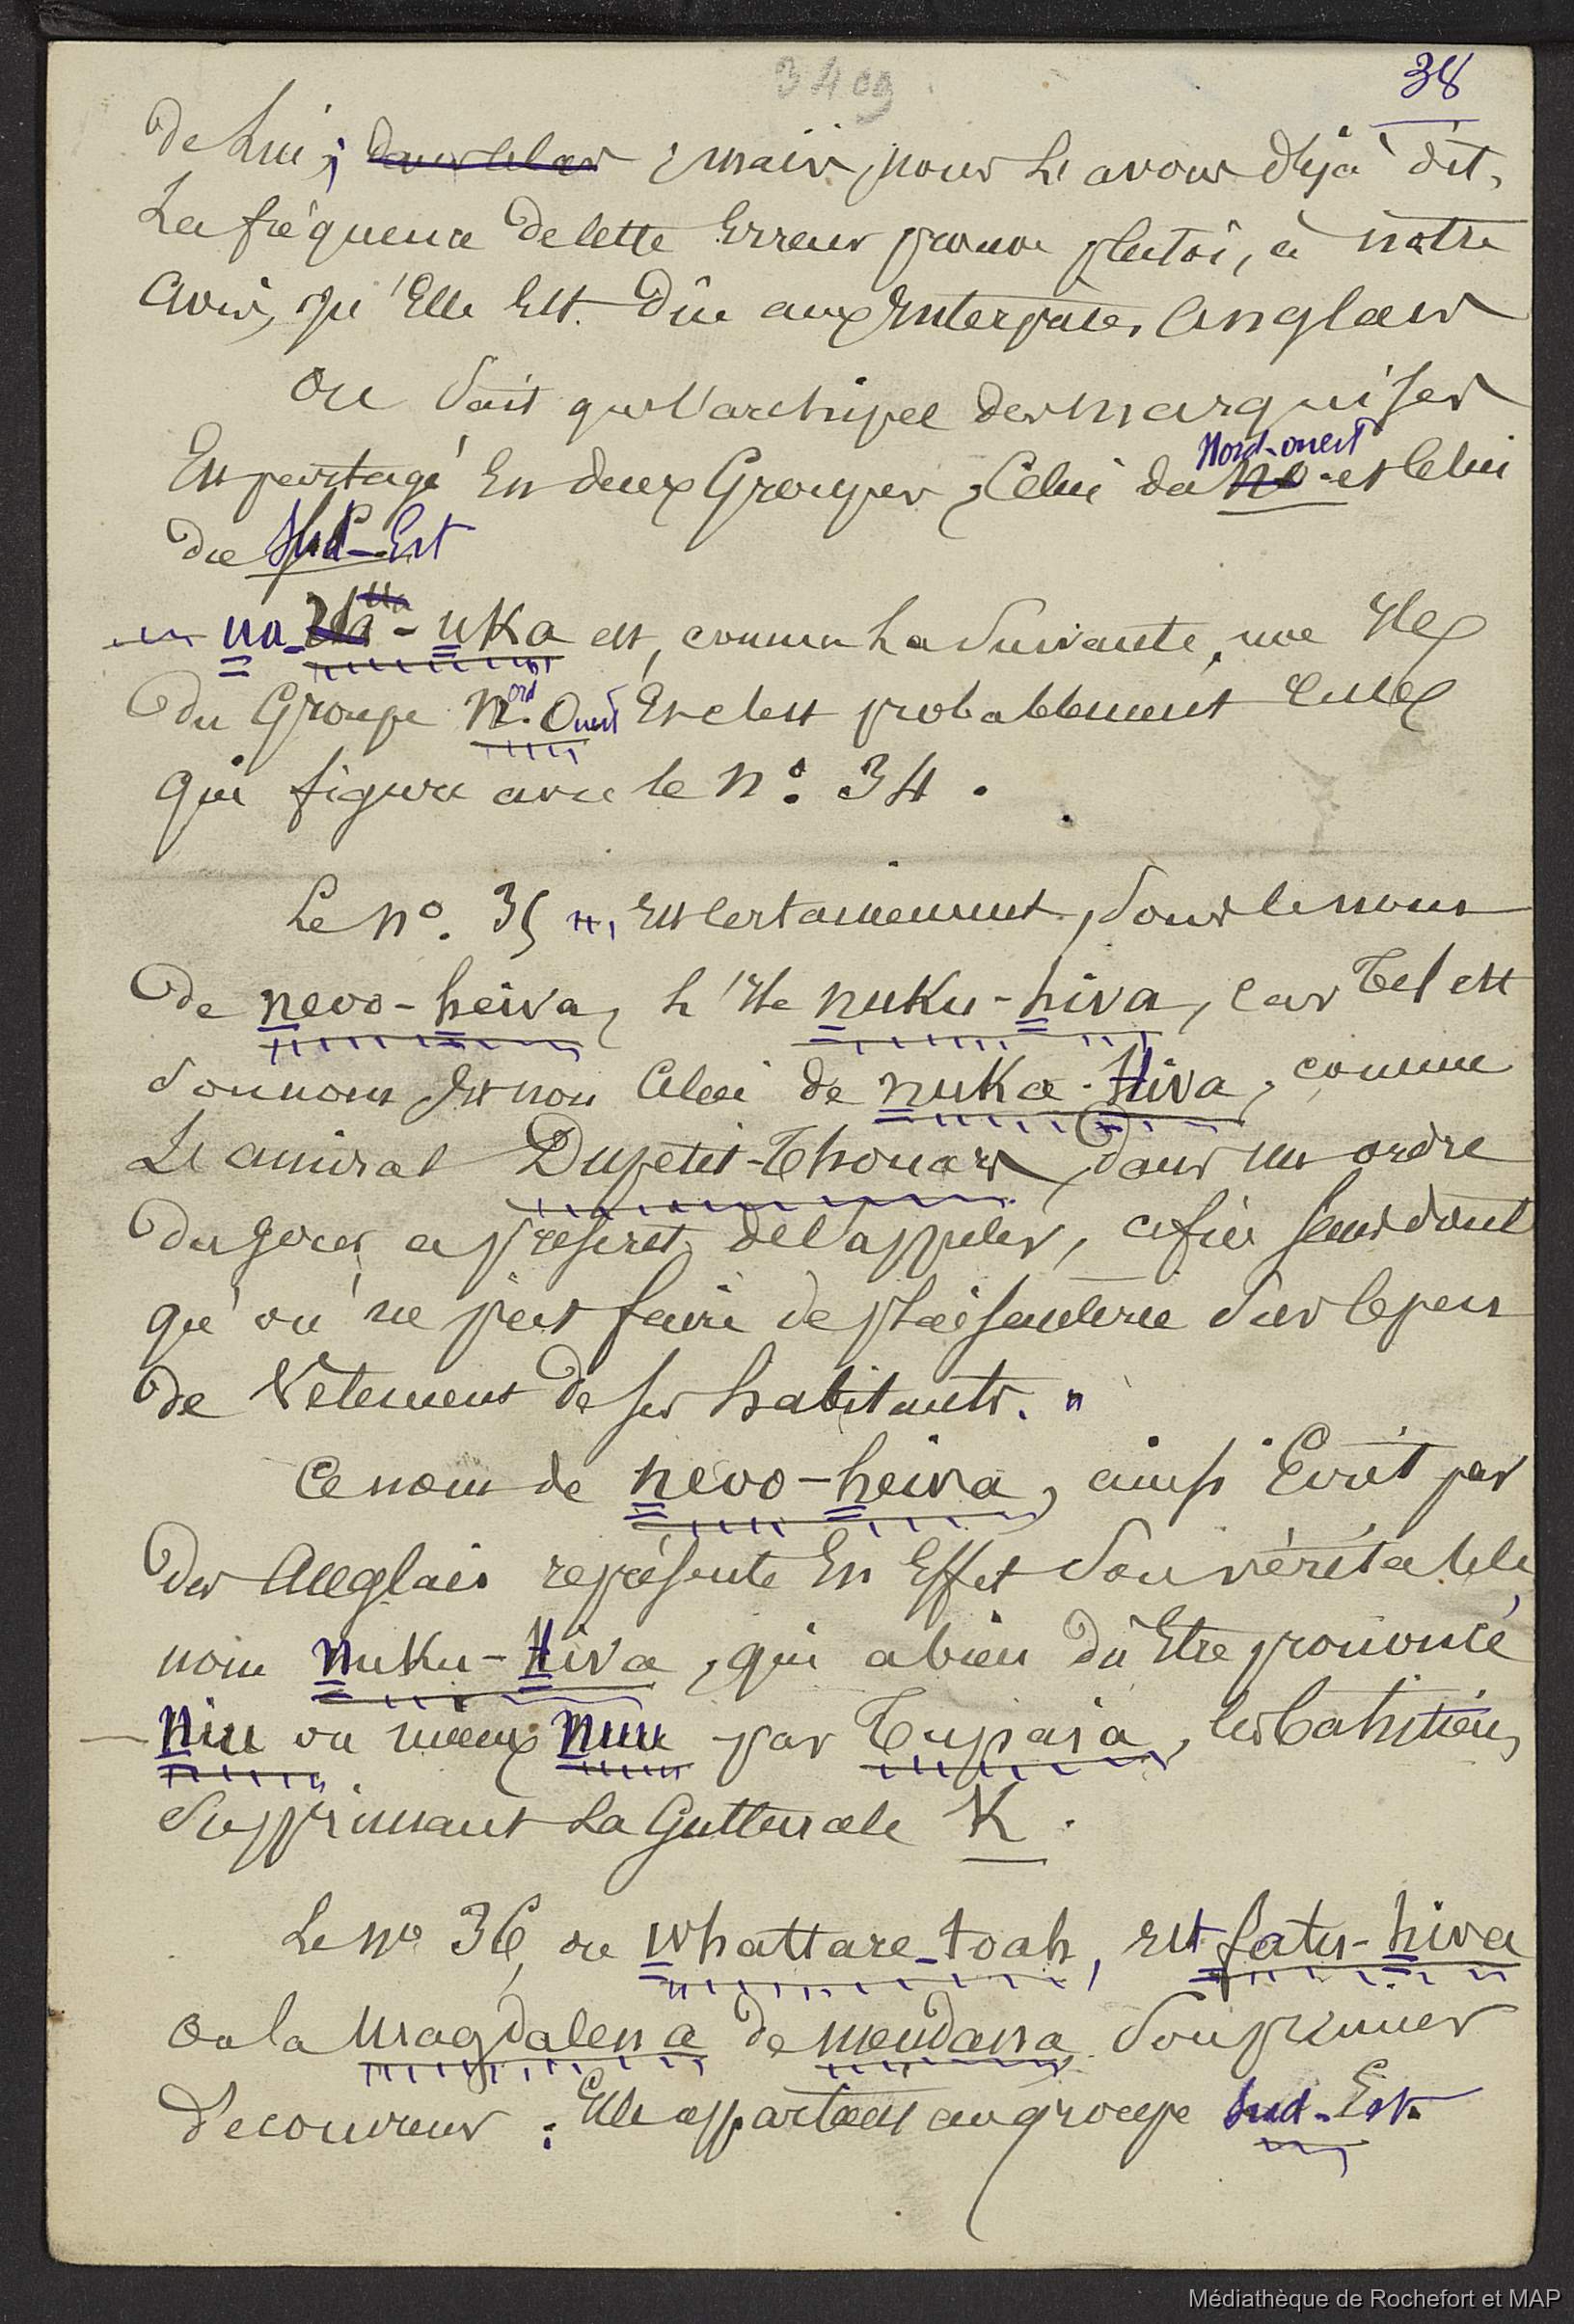 3409
38
de lui ; dans celas ; mais, nous l'avons déjà dit,
La fréquence de cette Erreur prouve plutôt, à notre
avis, qu'Elle Est dûe aux Interprètes Anglais
On Sait que l'archipel des marquises
Est partagé En deux Groupes, Celui du no Nord-ouest et Celui
du Sud-Est
ua-uka est, comme La Suivante, une Ile
du Groupe Nord. Ouest Et c'est probablement Celle
qui figure avec le n°. 34.
Le n°. 35 Est certainement, Sous le nom
de nevo-heiva, l'Ile nuku-hiva, car Tel est
Son nom Et non Celui de nuka-Hiva, comme
L'amiral Dupetit-Thouars, dans un ordre
du jour, a prescrit de l'appeler, afin sans doute
qu'on ne put faire de plaisanterie Sur le peu
de Vêtement de ses habitants. "
Ce nom de nevo-heiva, ainsi Ecrit par
des Anglais représente En Effet Son véritable
nom nuku-Hiva, qui a bien dû Etre prononcé
niu ou mieux nuu par Tupaia, les Tahitiens
Supprimant La Gutturale K.
Le n° 36, ou whattare-toah, Est fatu-hiva
ou la Magdalena de mendana Son premier
découvreur ; Elle appartient au groupe Sud-Est.
Médiathèque de Rochefort et MAP